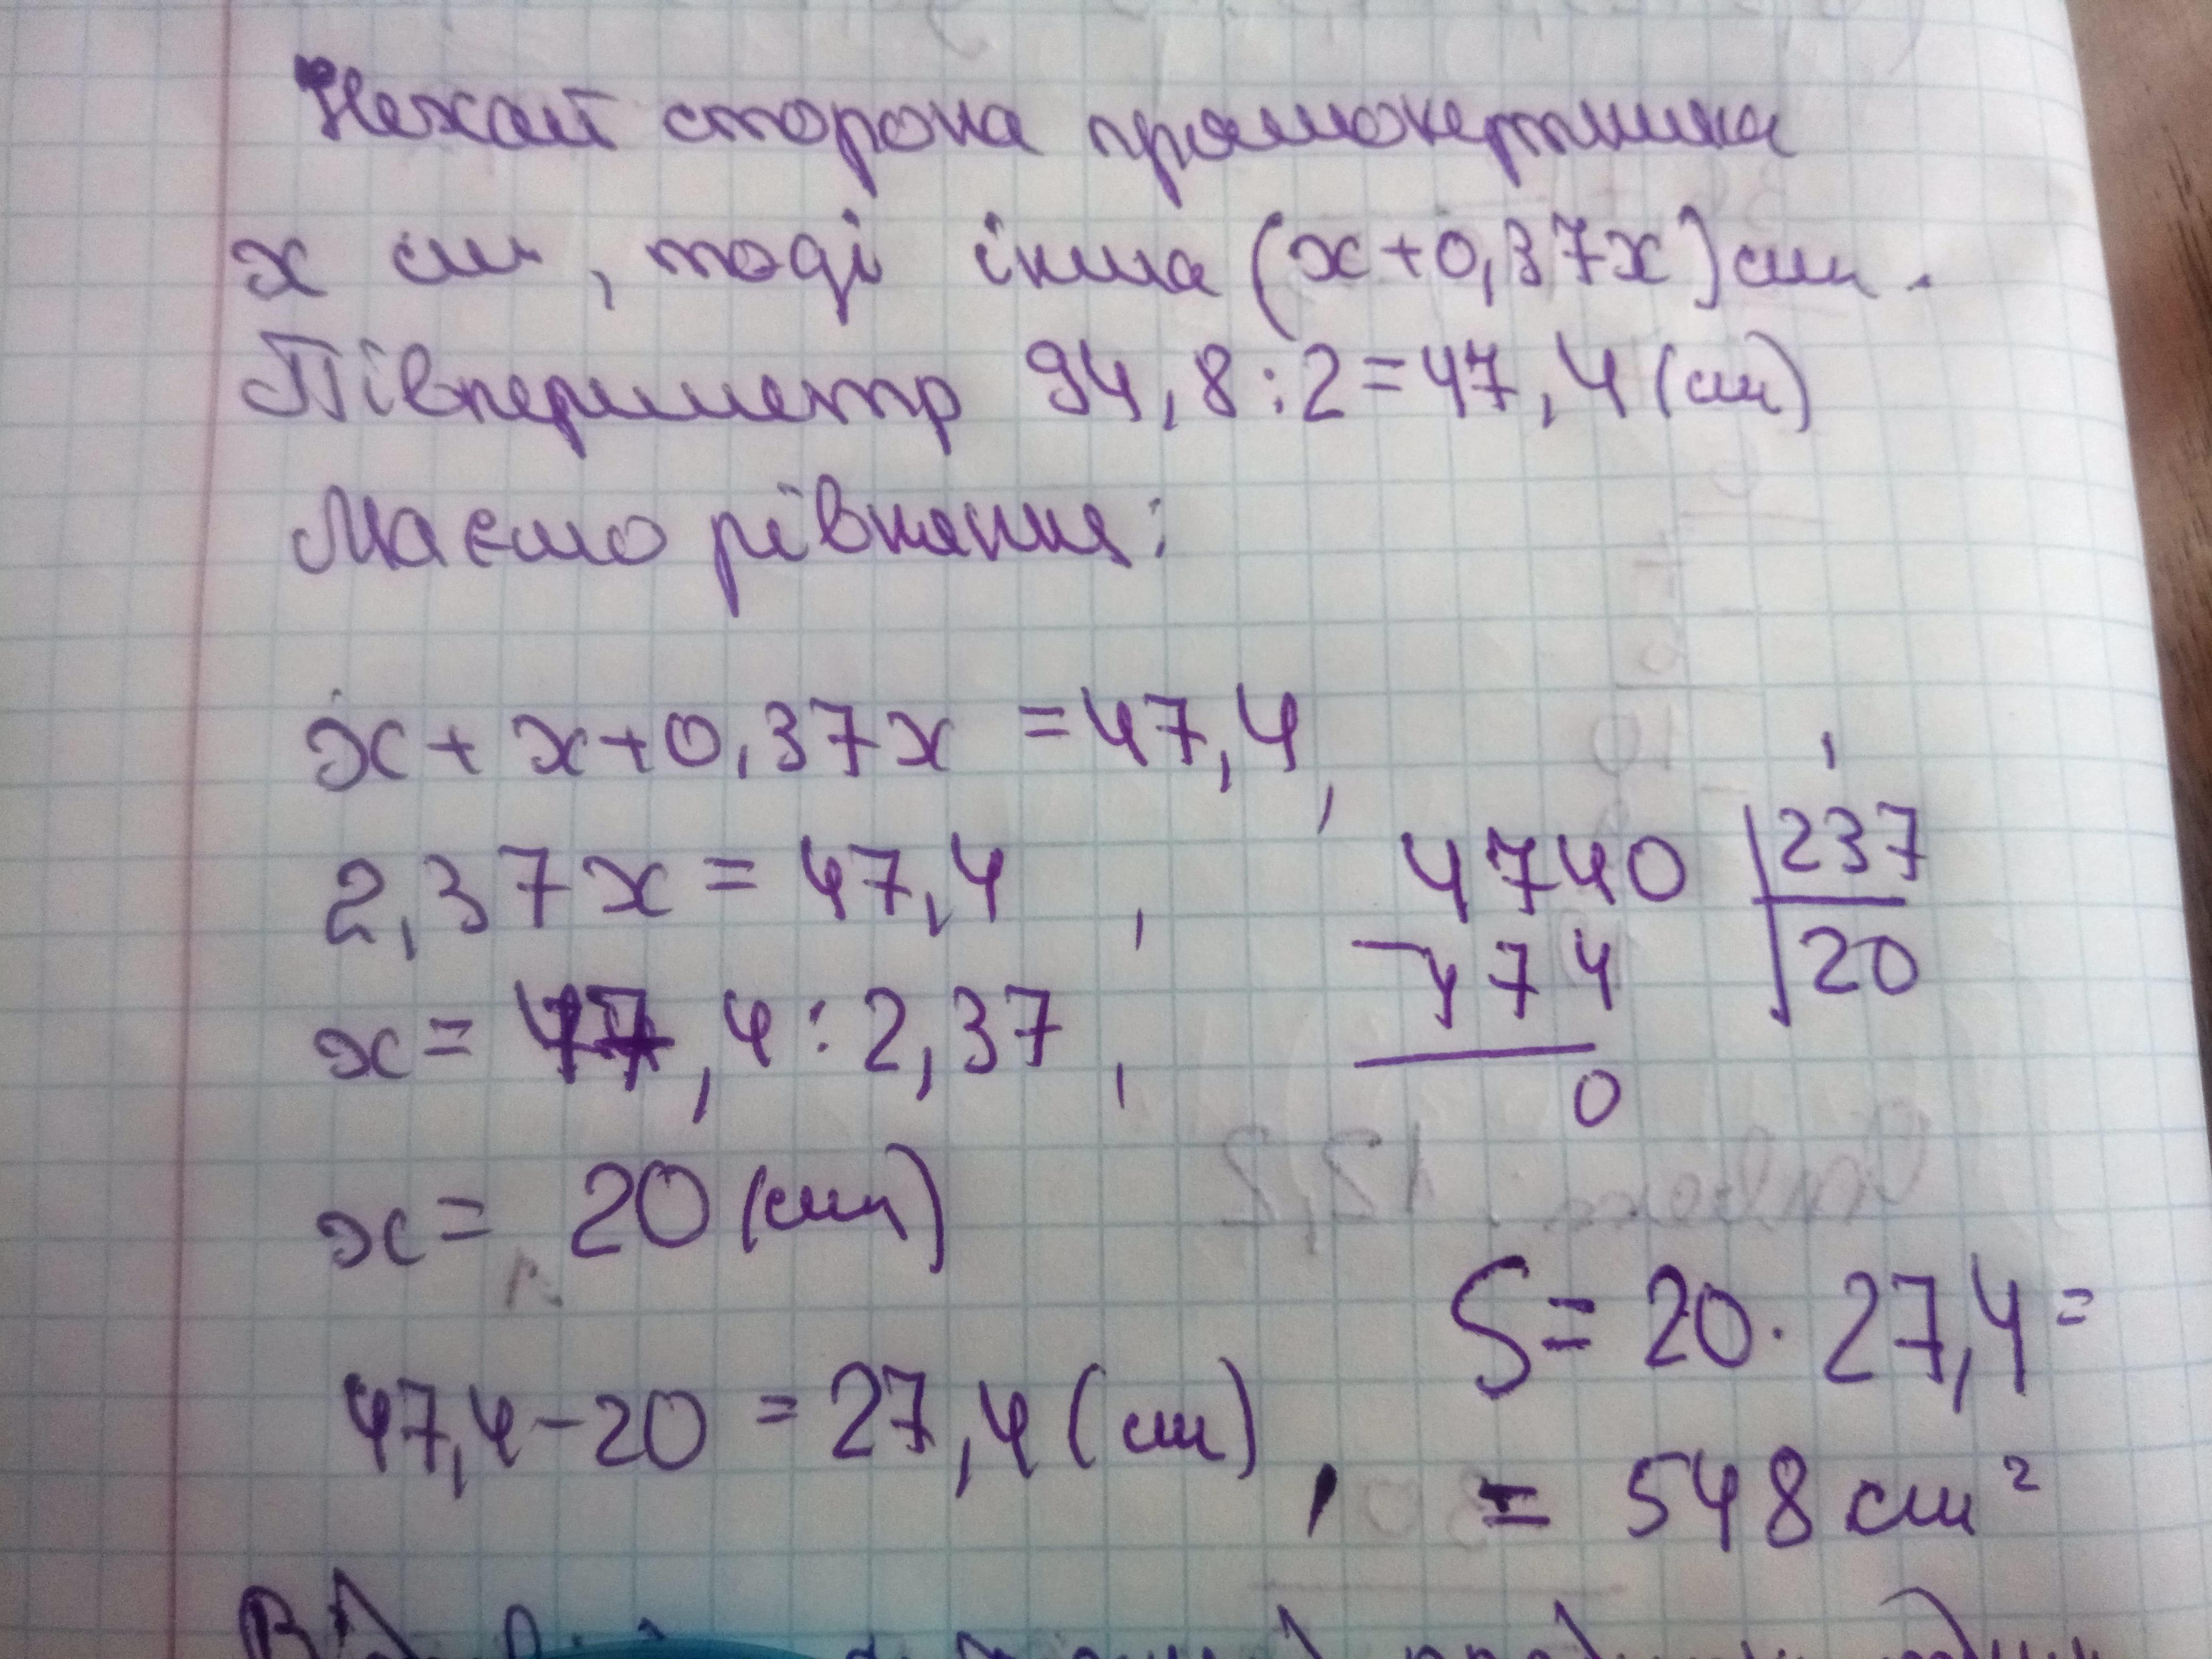 Нехай сторона прямокутника
x см, тоді інша (x+0,37x) см.
Півпериметр 94,8:2=47,4 (см)
Маємо рівняння:
x+x+0,37x =47,4,
2,37x=47,4,
4740 237
474 20
0
x=47,4:2,37,
x= 20 (см)
47,4-20=27,4 (см),
S=20·27,4=
=548 см²